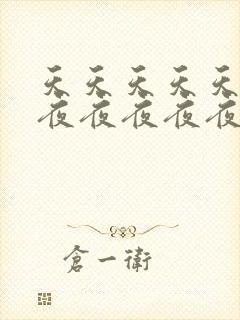 天天天天天
夜夜夜夜夜
倉一衛